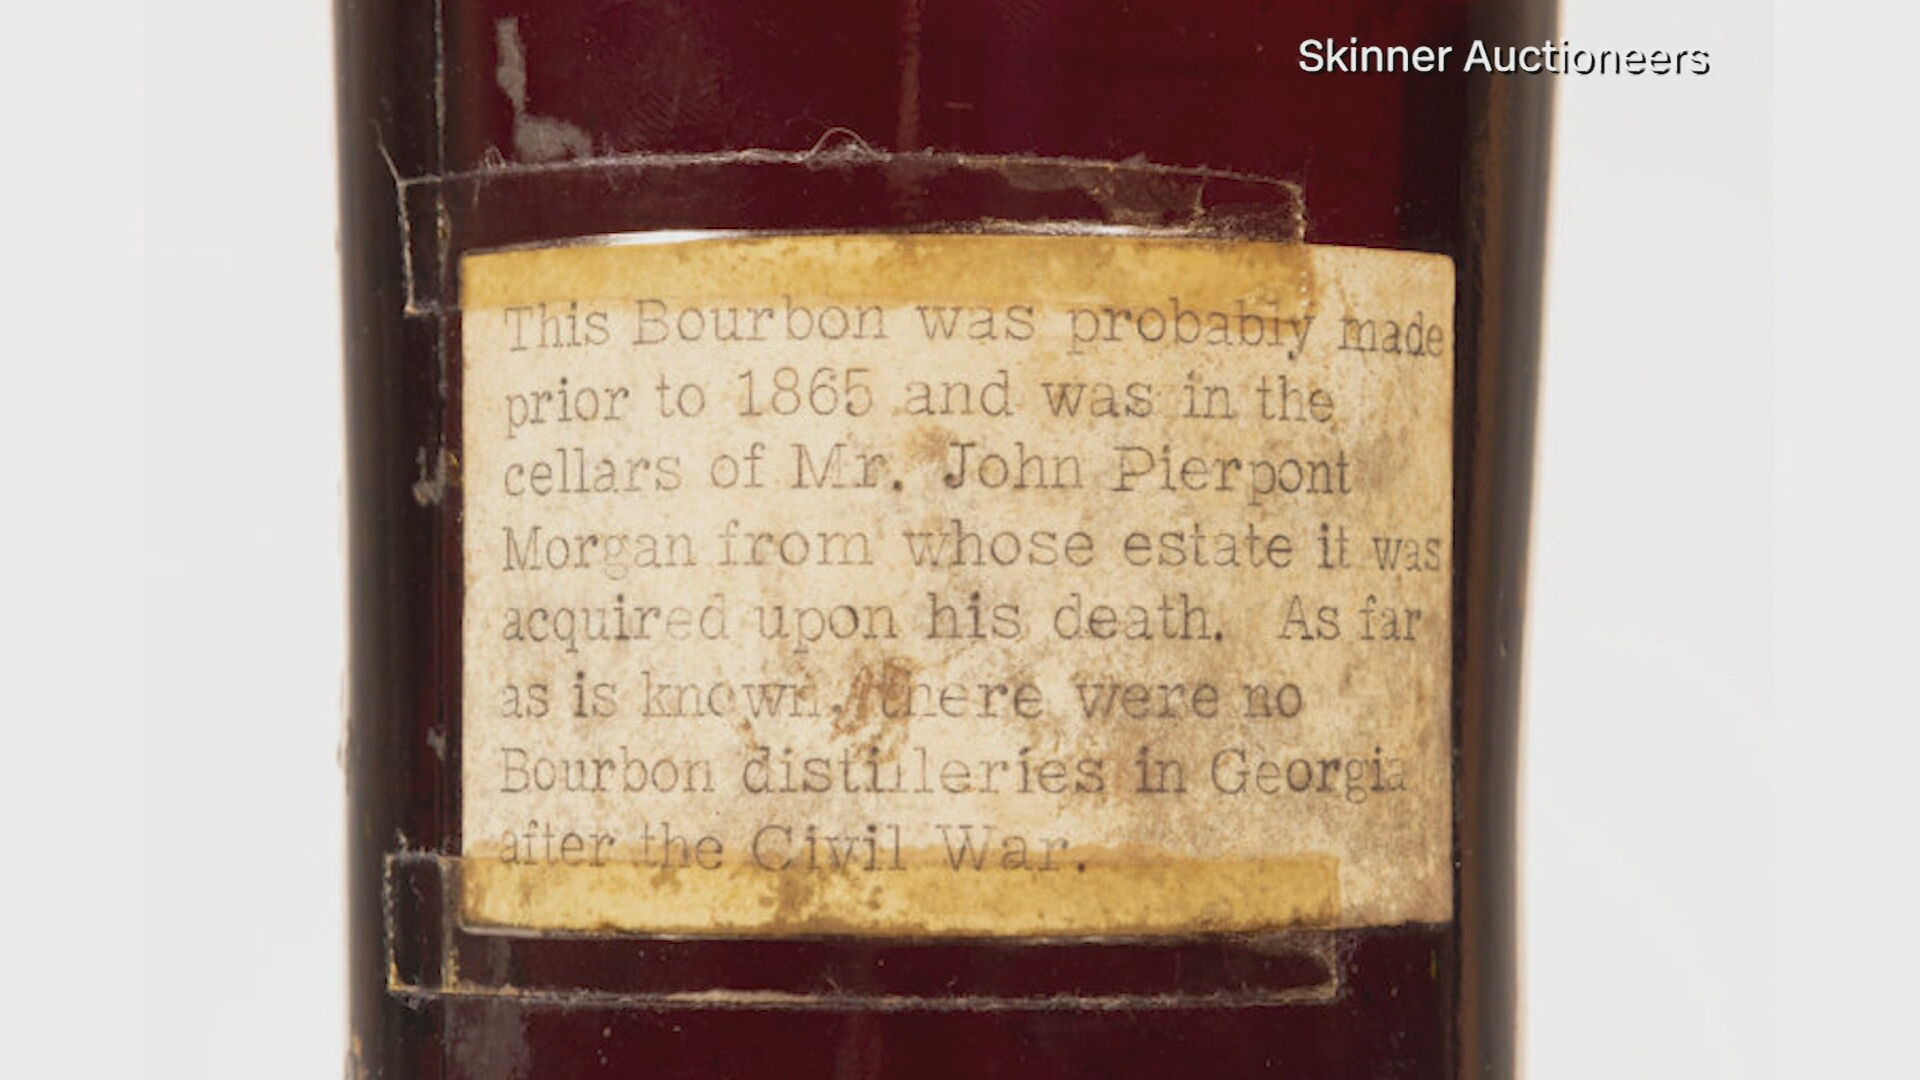 Skinner Auctioneers
This Bourbon was probably made
prior to 1865 and was in the
cellars of Mr. John Pierpont
Morgan from whose estate it was
acquired upon his death. As far
as is known, there were no
Bourbon distilleries in Georgia
after the Civil War.